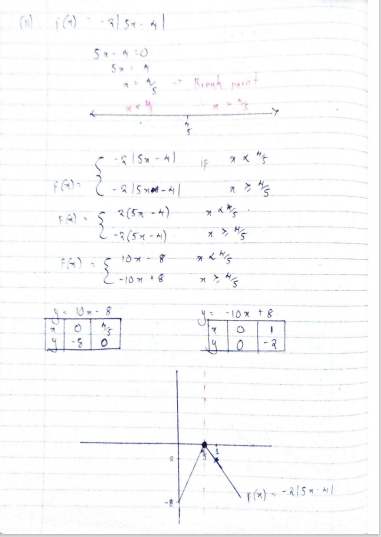 (ii) f(x) = -2|5x - 4|
5x - 4 = 0
5x = 4
x = 4/5 → Break point
x < 4/5 x > 4/5
4/5
f(x) = { -2|5x - 4| if x < 4/5
-2|5x - 4| x ≥ 4/5
f(x) = { 2(5x - 4) x < 4/5
-2(5x - 4) x ≥ 4/5
f(x) = { 10x - 8 x < 4/5
-10x + 8 x ≥ 4/5
y = 10x - 8 y = -10x + 8
x 0 4/5 x 0 1
y -8 0 y 0 -2
1
-8
f(x) = -2|5x - 4|